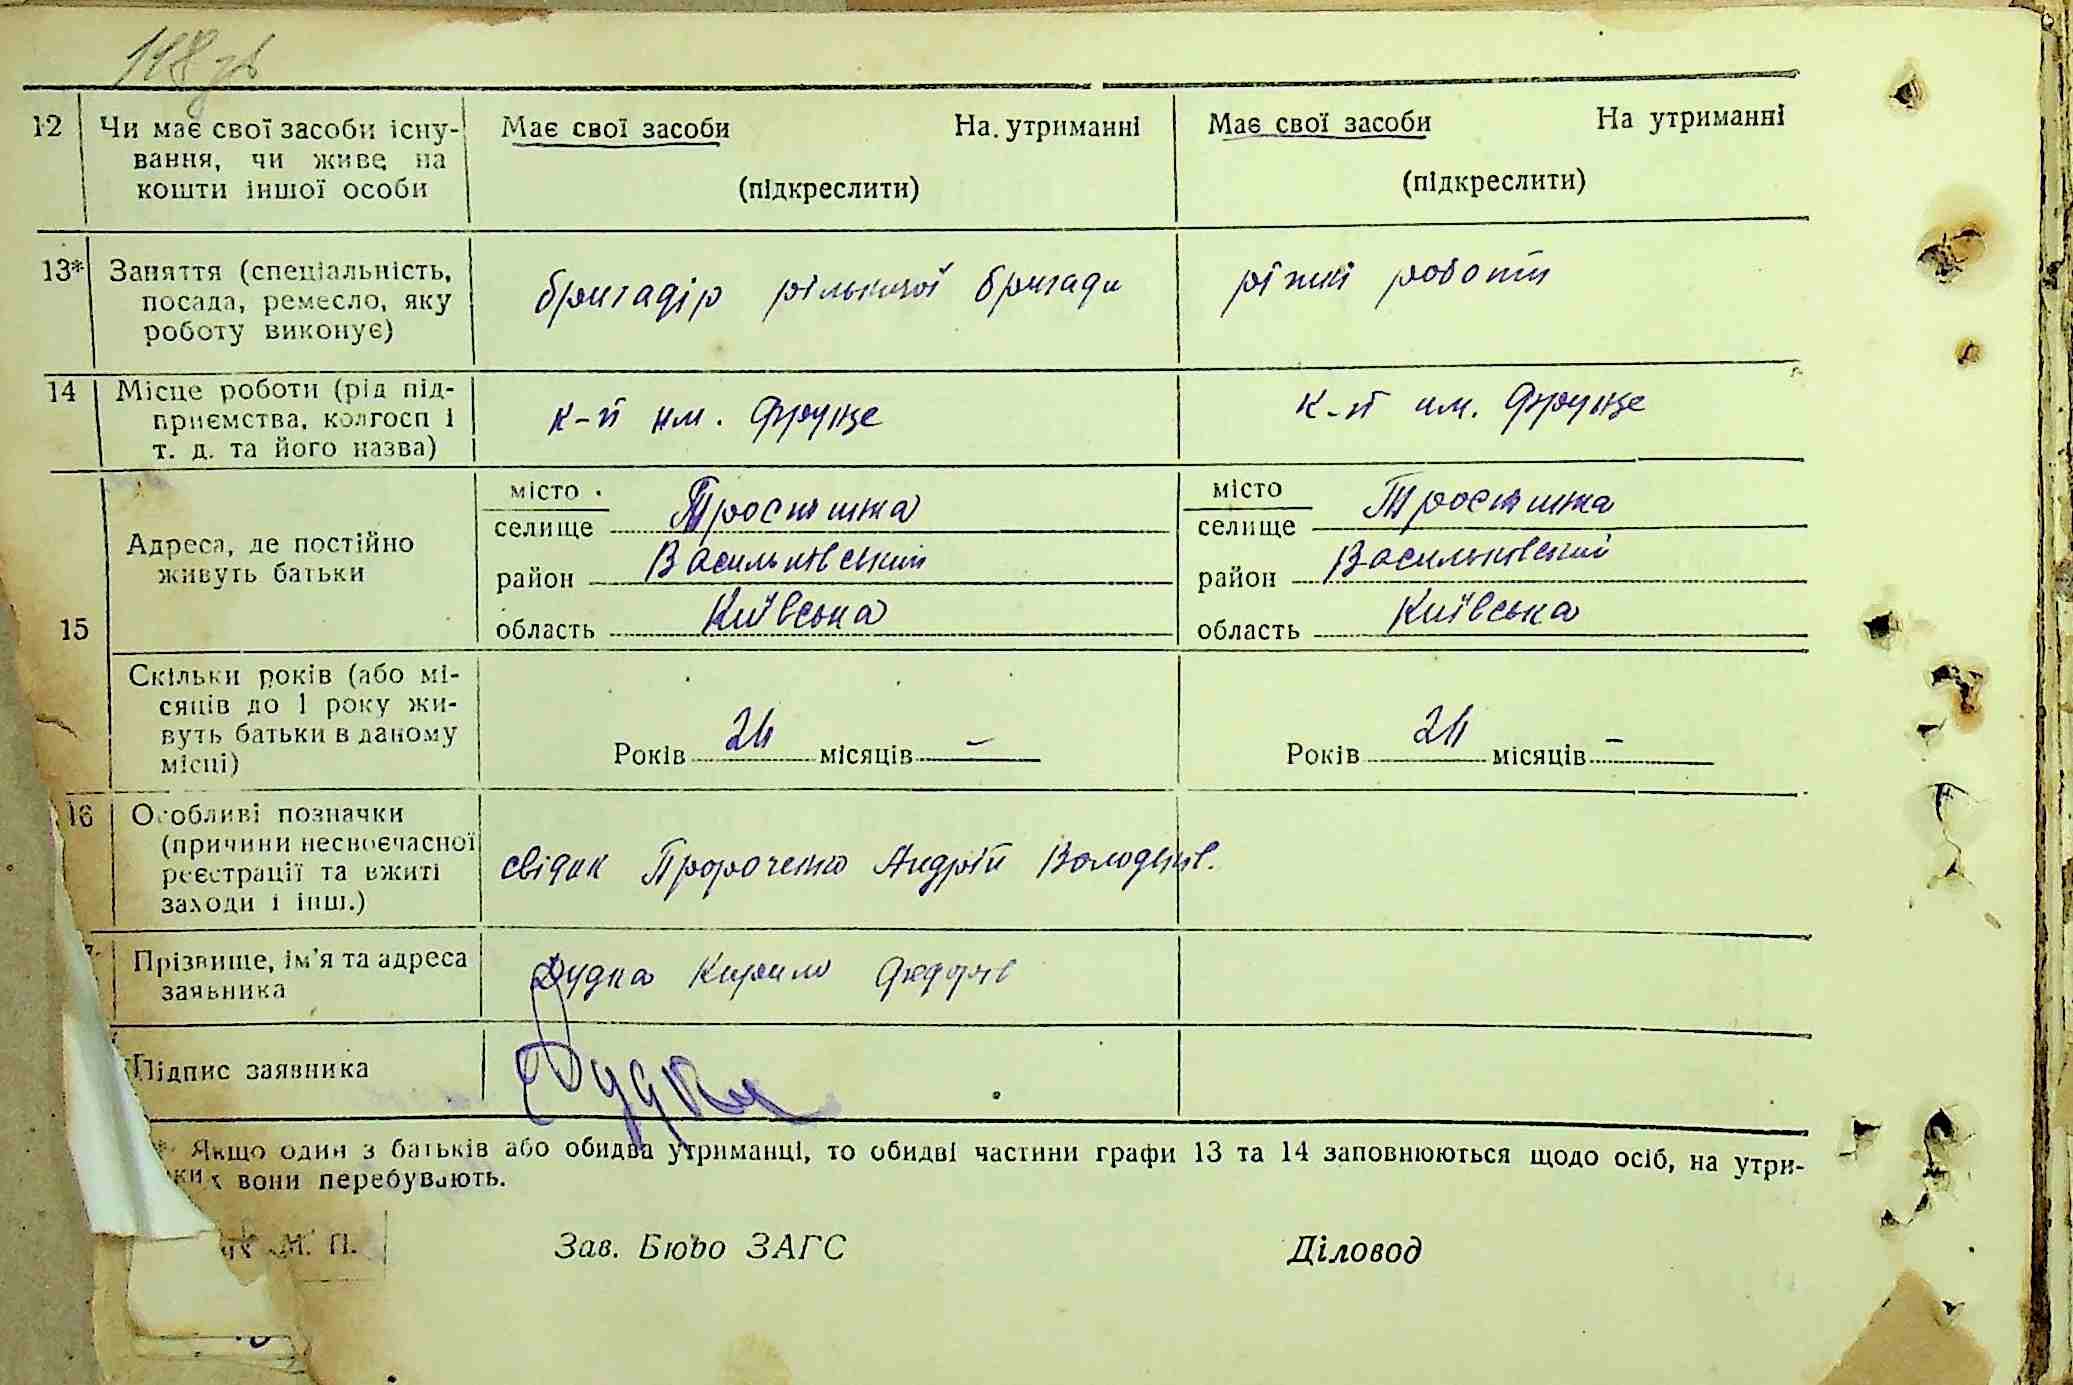 118 зв
12 Чи має свої засоби існу- Має свої засоби На утриманні Має свої засоби На утриманні
вання, чи живе на
кошти іншої особи (підкреслити) (підкреслити)
13* Заняття (спеціальність,
посада, ремесло, яку бригадір рільничої бригади ріжні роботи
роботу виконує)
14 Місце роботи (рід під-
приємства, колгосп і к-п им. Фрунзе к-п им. Фрунзе
т. д. та його назва)
місто Тростинка місто Тростинка
селище селище
Адреса, де постійно
живуть батьки район Васильківський район Васильківский
15 область Київська область Київська
Скільки років (або мі-
сяців до 1 року жи-
вуть батьки в даному
місці) Років 24 місяців – Років 24 місяців –
16 Особливі позначки
(причини несвоєчасної
реєстрації та вжиті свідок Пророченко Андрій
заходи і інш.)
Прізвище, ім'я та адреса
заявника Дудка Кирило
Підпис заявника Дудка
* Якщо один з батьків або обидва утриманці, то обидві частини графи 13 та 14 заповнюються щодо осіб, на утри-
ких вони перебувають.
М. П. Зав. Бюро ЗАГС Діловод